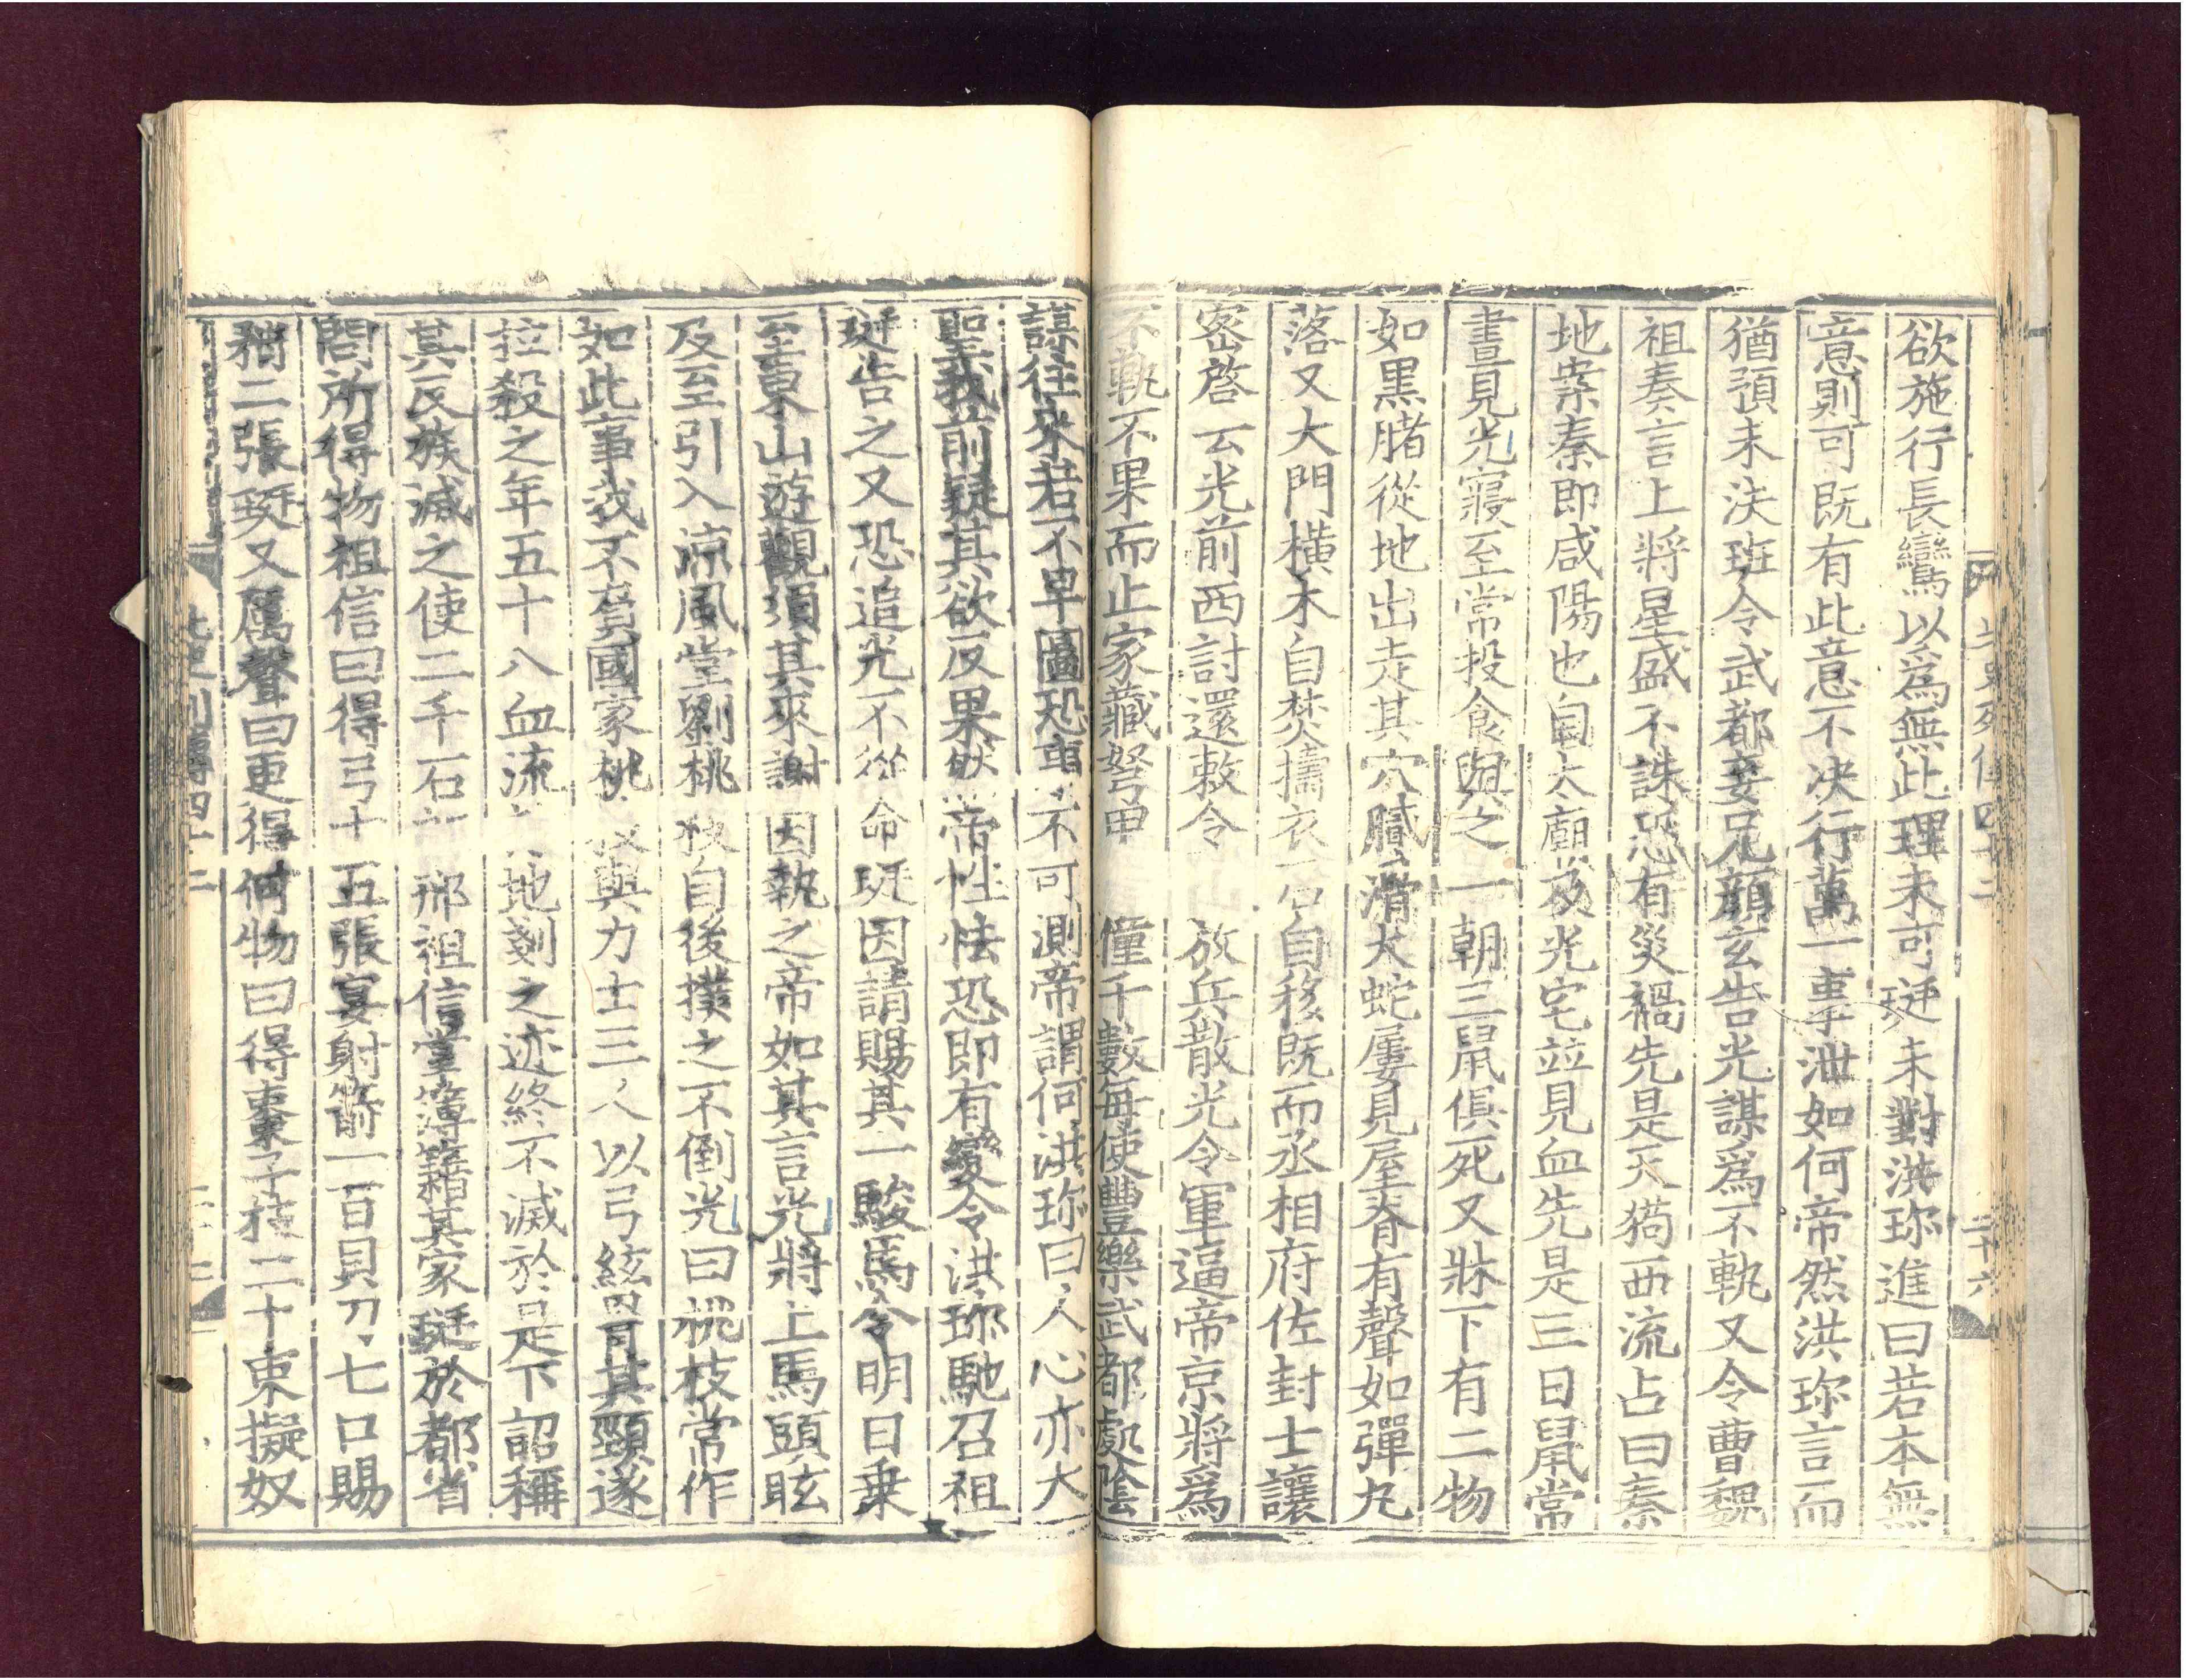 欲施行長鸞以爲無此理未可珽未對洪珍進曰若本無
意則可既有此意不决行萬一事泄如何帝然洪珍言而
猶預未決珽令武都妾兄顔玄告光謀爲不軌又令曹魏
祖奏言上將星盛不誅恐有災禍先是天狗西流占曰秦
地案秦即咸陽也自太廟及光宅並見血先是三日鼠常
晝見光寢至常投食與之一朝三鼠俱死又牀下有二物
如黑腯從地出走其穴膩滑大蛇屢見屋脊有聲如彈丸
落又大門橫木自焚擣衣石自移既而丞相府佐封士讓
密啓云光前西討還敕令放兵散光令軍逼帝京將爲
不軌不果而止家藏弩甲僮千數每使豐樂武都處陰
謀往來若不早圖恐事不可測帝謂何洪珍曰人心亦大
聖我前疑其欲反果然帝性怯恐即有變令洪珍馳召祖
珽告之又恐追光不從命珽因請賜其一駿馬令明日乗
至東山遊觀須其來謝因執之帝如其言光將上馬頭眩
及至引入涼風堂劉桃枝自後撲之不倒光曰桃枝常作
如此事我不負國家桃枝與力士三人以弓絃罥其頸遂
拉殺之年五十八血流地剗之迹終不滅於是下詔稱
其反族滅之使二千石郎邢祖信掌簿籍其家珽於都省
問所得物祖信曰得弓十五張宴射箭一百貝刀七口賜
矟二張珽又厲聲曰更得何物曰得棗子枝二十束擬奴
北史列傳四十二
二十六